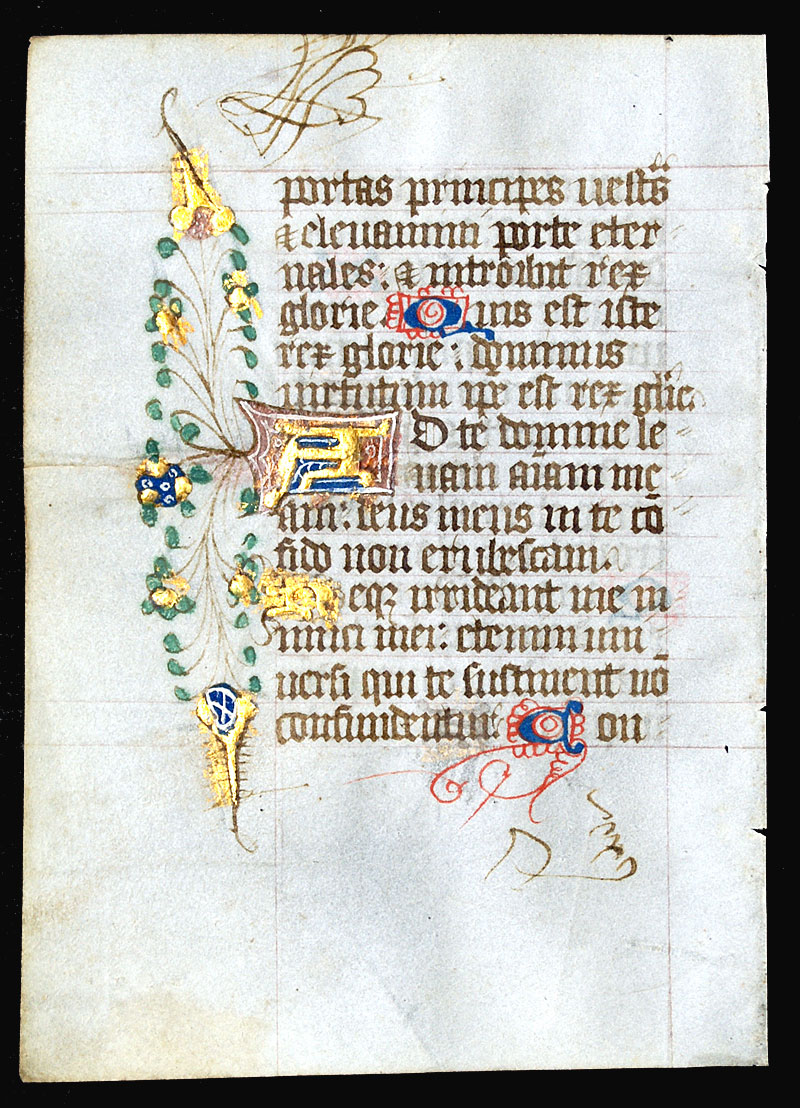 portas principes uestͣs
& eleuamini porte eter
nales: & introibūt rex
glorie Quis est iste
rex glorie: dominus
uirtutum ip̄e est rex glīe.
AD te domine le
uaui aīam me
am: deus meus in te cō
fido non erubescam.
Neqꝫ irrideant me in
imici mei: etenim uni
uersi qui te sustinent nō
confundentur. Con